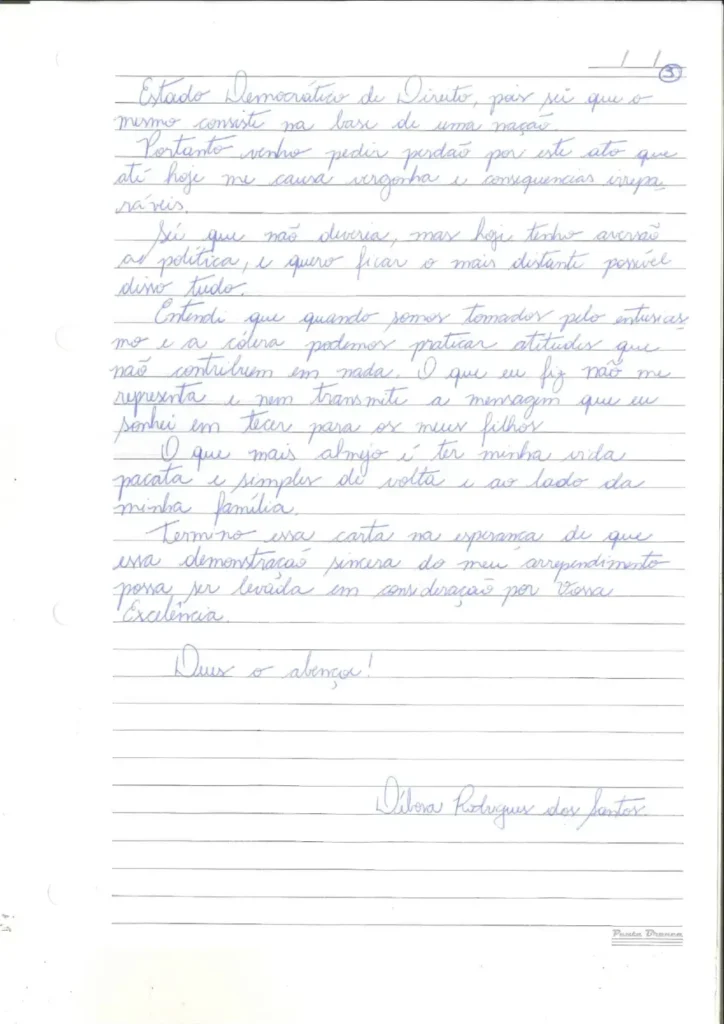 / /
3
Estado Democrático de Direito, pois sei que o
mesmo consiste na base de uma nação.
Portanto venho pedir perdão por este ato que
até hoje me causa vergonha e consequencias irrepa-
ráveis.
Sei que não deveria, mas hoje tenho aversão
a política, e quero ficar o mais distante possível
disso tudo.
Entendi que quando somos tomados pelo entusias-
mo e a cólera podemos praticar atitudes que
não contribuem em nada. O que eu fiz não me
representa e nem transmite a mensagem que eu
sonhei em tecer para os meus filhos
O que mais almejo é ter minha vida
pacata e simples de volta e ao lado da
minha família.
Termino essa carta na esperança de que
essa demonstração sincera do meu arrependimento
possa ser levada em consideração por Vossa
Excelência.
Deus o abençoe!
Débora Rodrigues dos Santos.